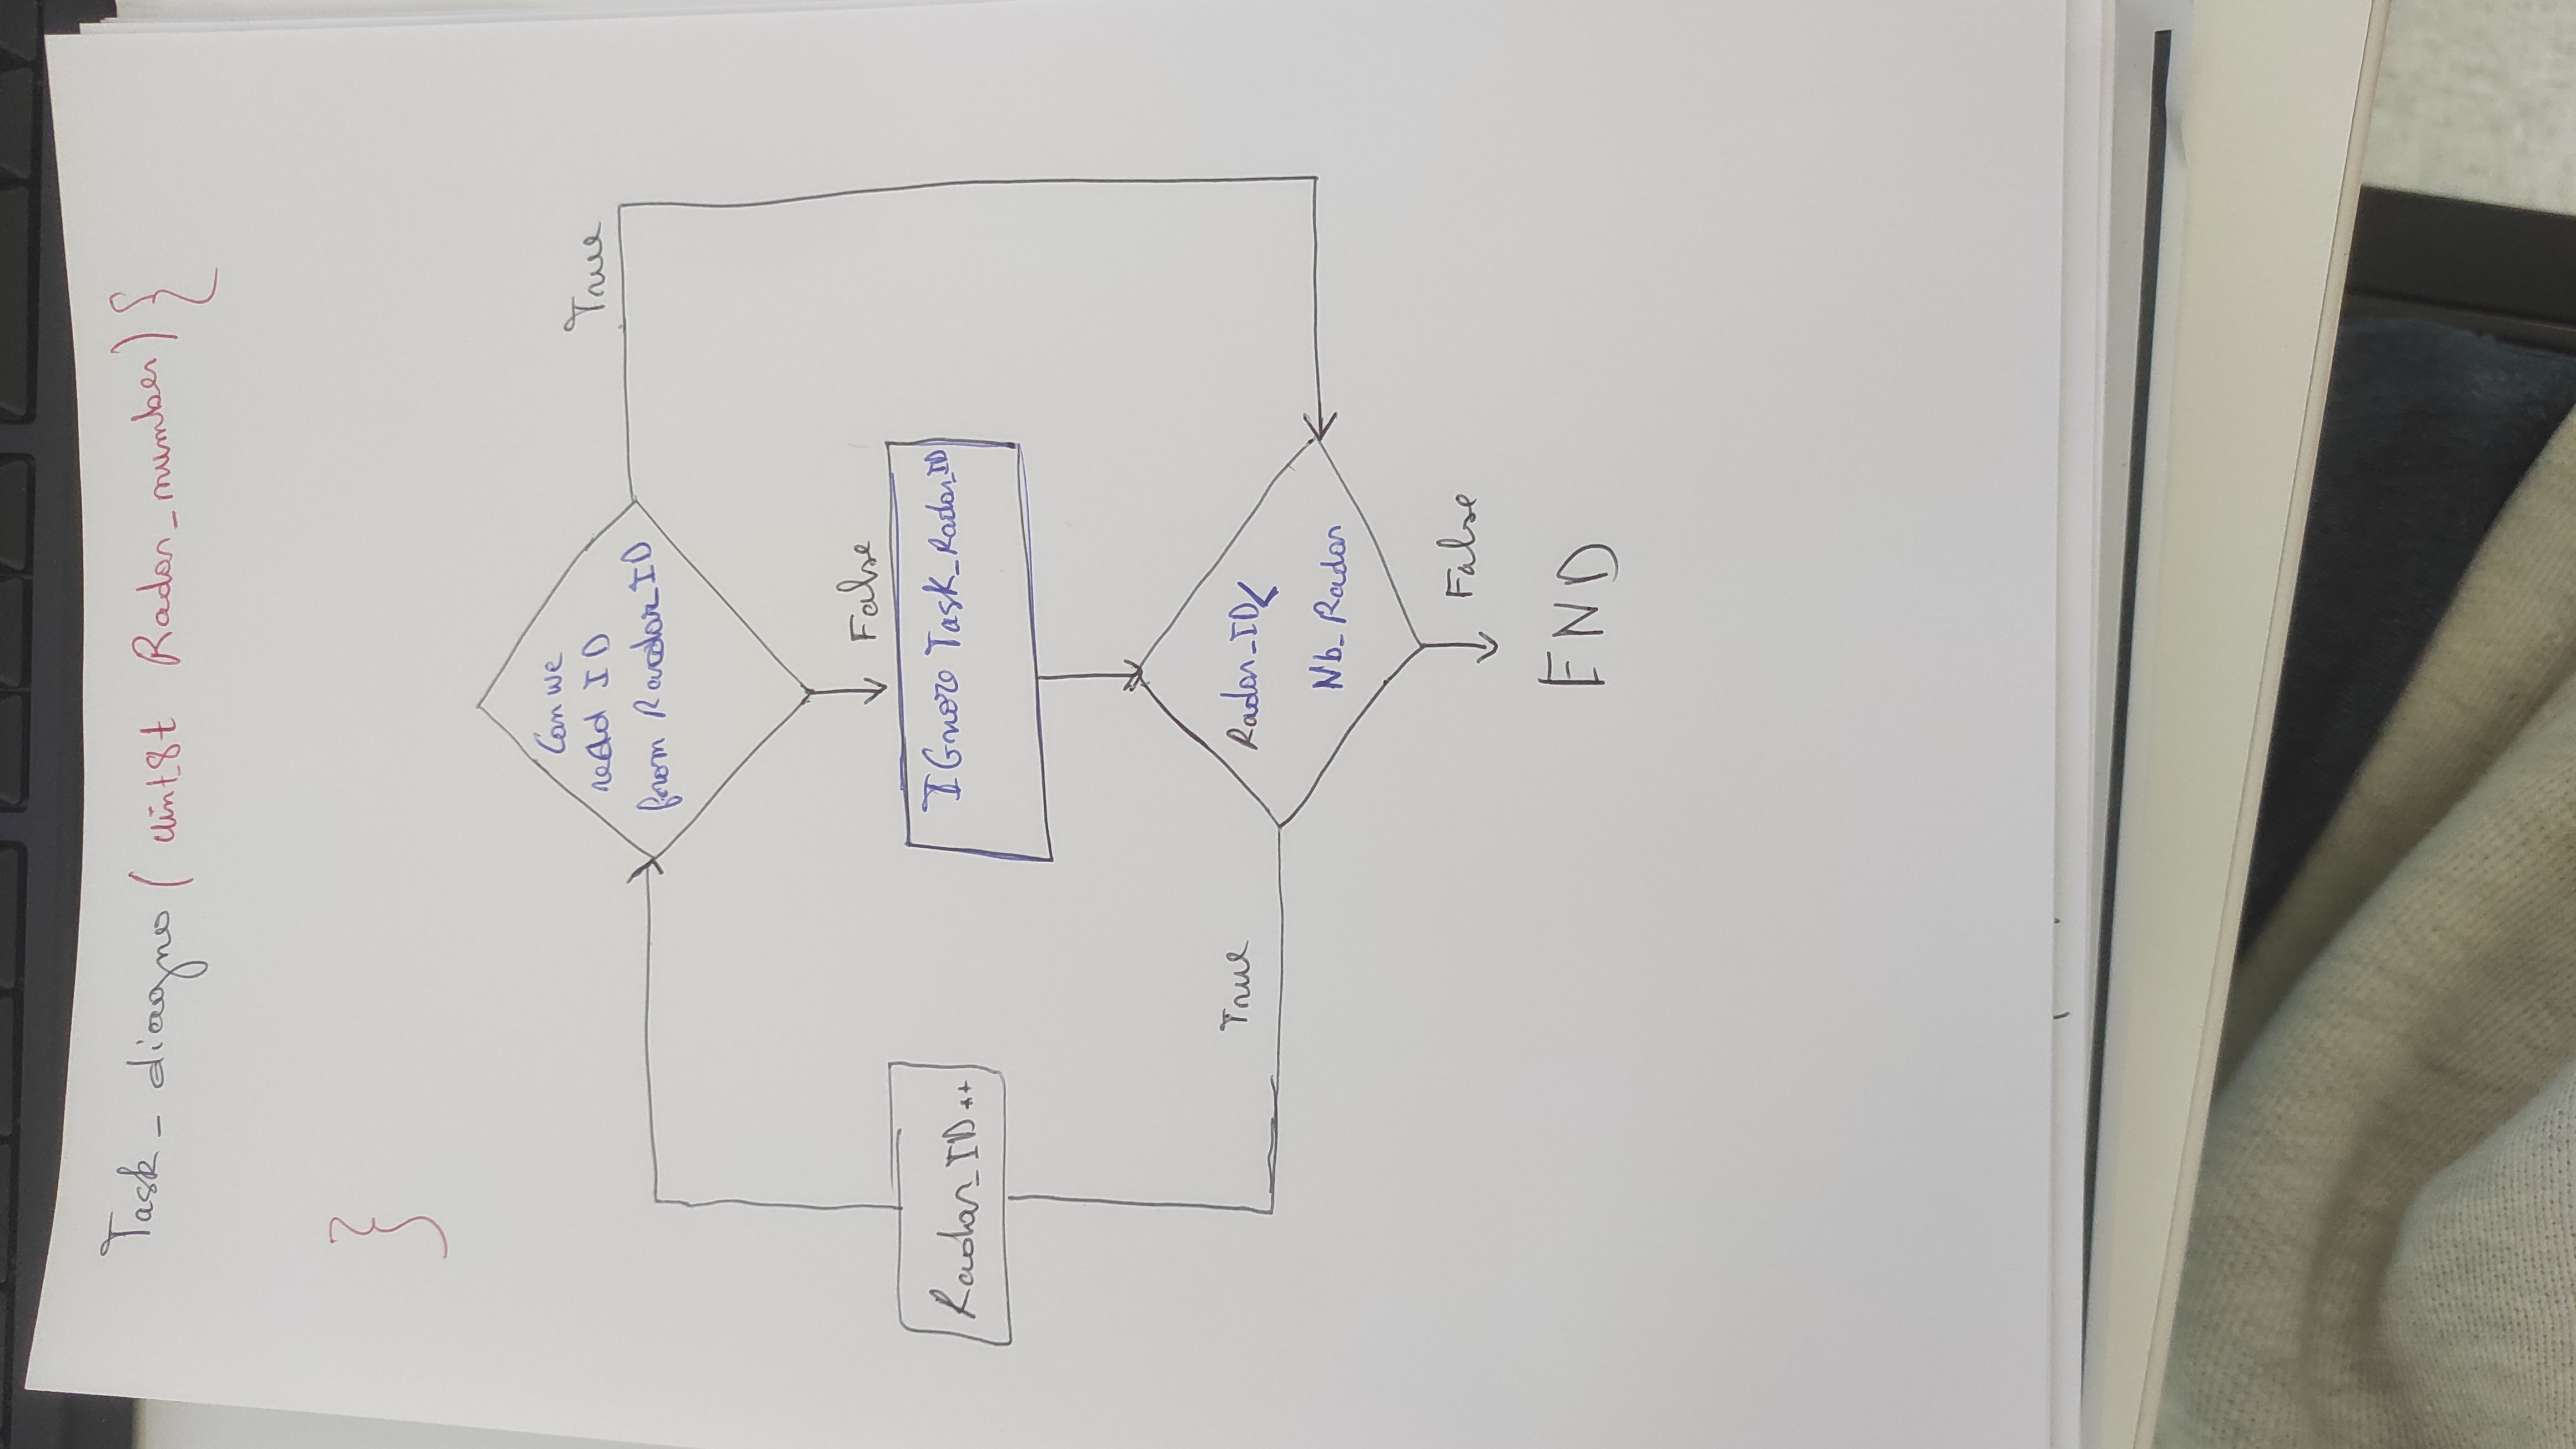 Task_diagno ( uint_8t Radar_number) {
}
Can we
read ID
from Raadar_ID
True
False
Radar_ID++
IGnore Task_Radar_ID
True
Radar_ID<
Nb_Radar
False
END